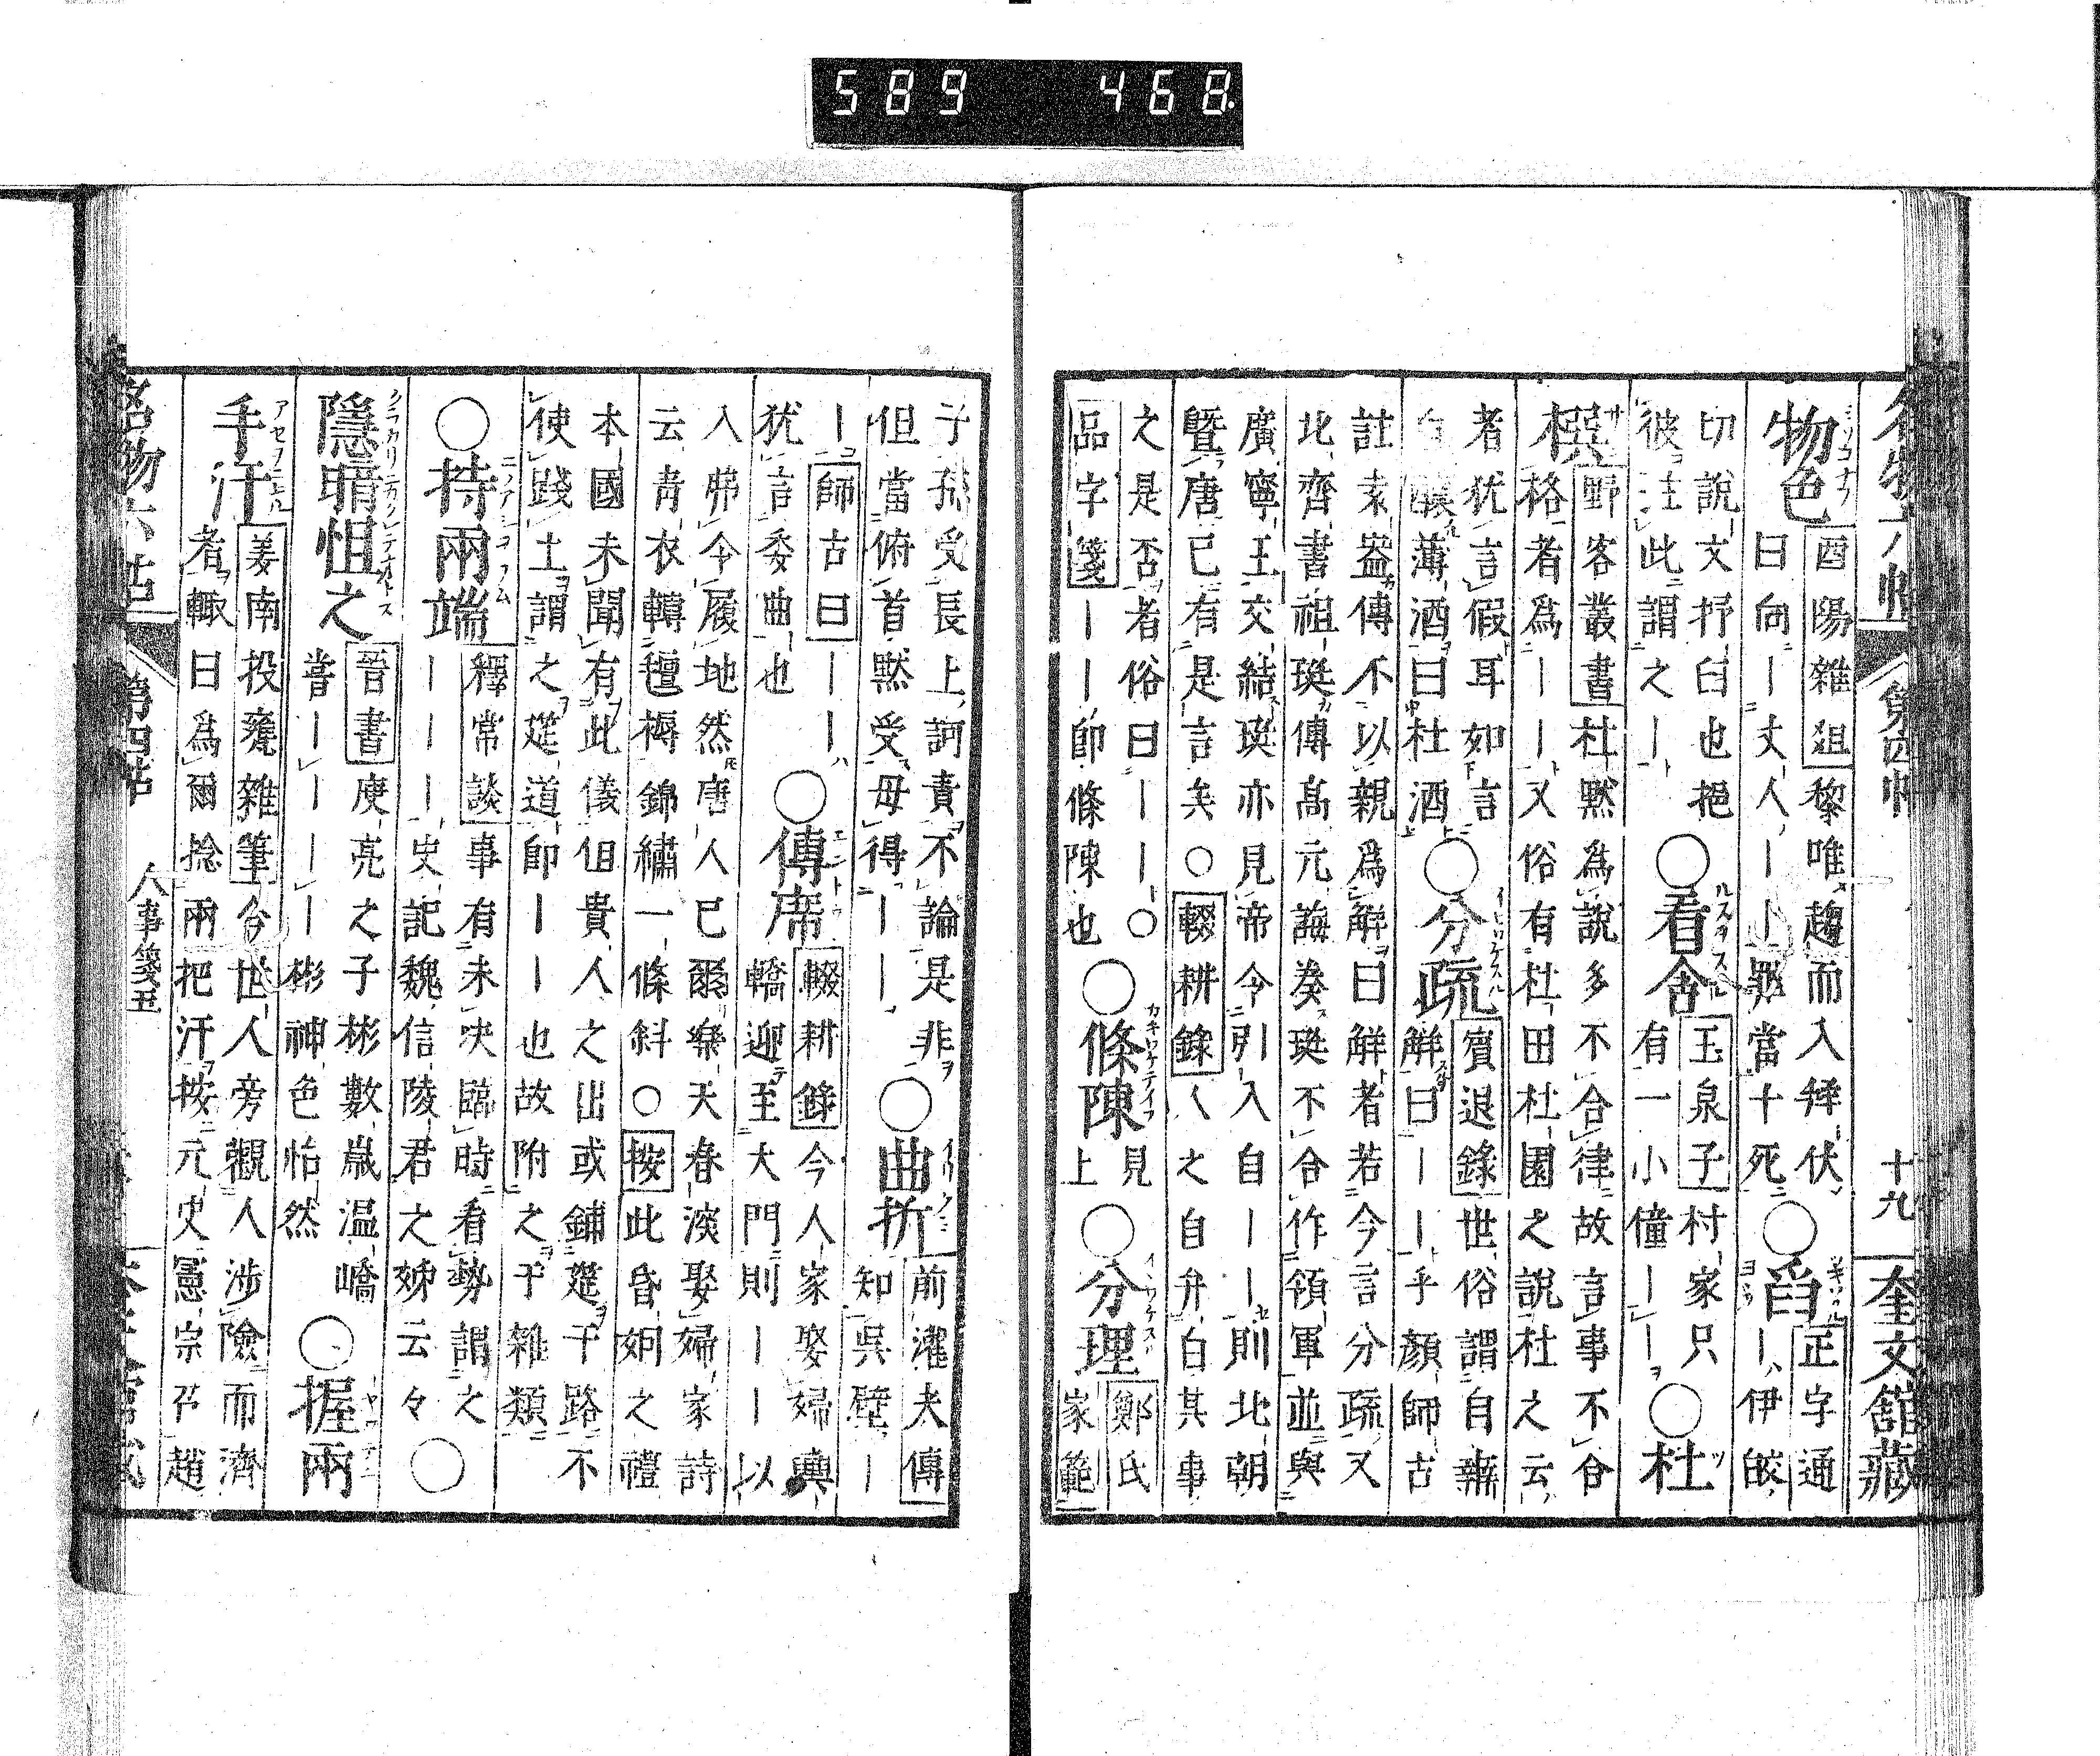 589 468
名物六帖 第四帖 十九 奎文館藏
物色 酉陽雜俎黎唯趨而入拜伏
曰向―丈人――罪當十死
○舀 正字通
―伊皎
切說文抒臼也挹
彼注此謂之―
○看舍 玉泉子村家只
有一小僮――
○杜
撰 野客叢書杜默為說多不合律故言事不合
格者為――又俗有杜田杜園之說杜之云
者犹言假耳如言
自釀薄酒曰杜酒
○分疏 賓退錄世俗謂自辨
解曰――乎顏師古
註袁盎傳不以親為解曰解者若今言分疏又
北齊書祖珽傳高元海奏珽不合作領軍並與
廣寧王交結珽亦見帝令引入自――則北朝
曁唐已有是言矣○輟耕錄人之自弁白其事
之是否者俗曰――○
品字箋――即條陳也
○條陳 見上
○分理 鄭氏家範
子孫受長上訶責不論是非
但當俯首黙受毋得――
○曲折 前灌夫傳
知吳壁―
―師古曰――
犹言委曲也
○傳席 輟耕錄今人家娶婦輿
轎迎至大門則――以
入弗令履地然唐人已爾樂天春深娶婦家詩
云青衣轉氊褥錦繡一條斜○按此昏姻之禮
本國未聞有此儀但貴人之出或鋪筵于路不
使踐土謂之筵道即――也故附之于雜類
○持兩端 釋常談事有未决臨時看勢謂之
―――史記魏信陵君之姊云々○
隱暗怛之 晉書庾亮之子彬數歳温嶠
甞――――彬神色怡然
○握兩
手汗 姜南投甕雜筆今世人旁觀人涉險而濟
者輒曰為爾捻兩把汗按元史憲宗召趙
名物六帖 第四帖 人事箋五